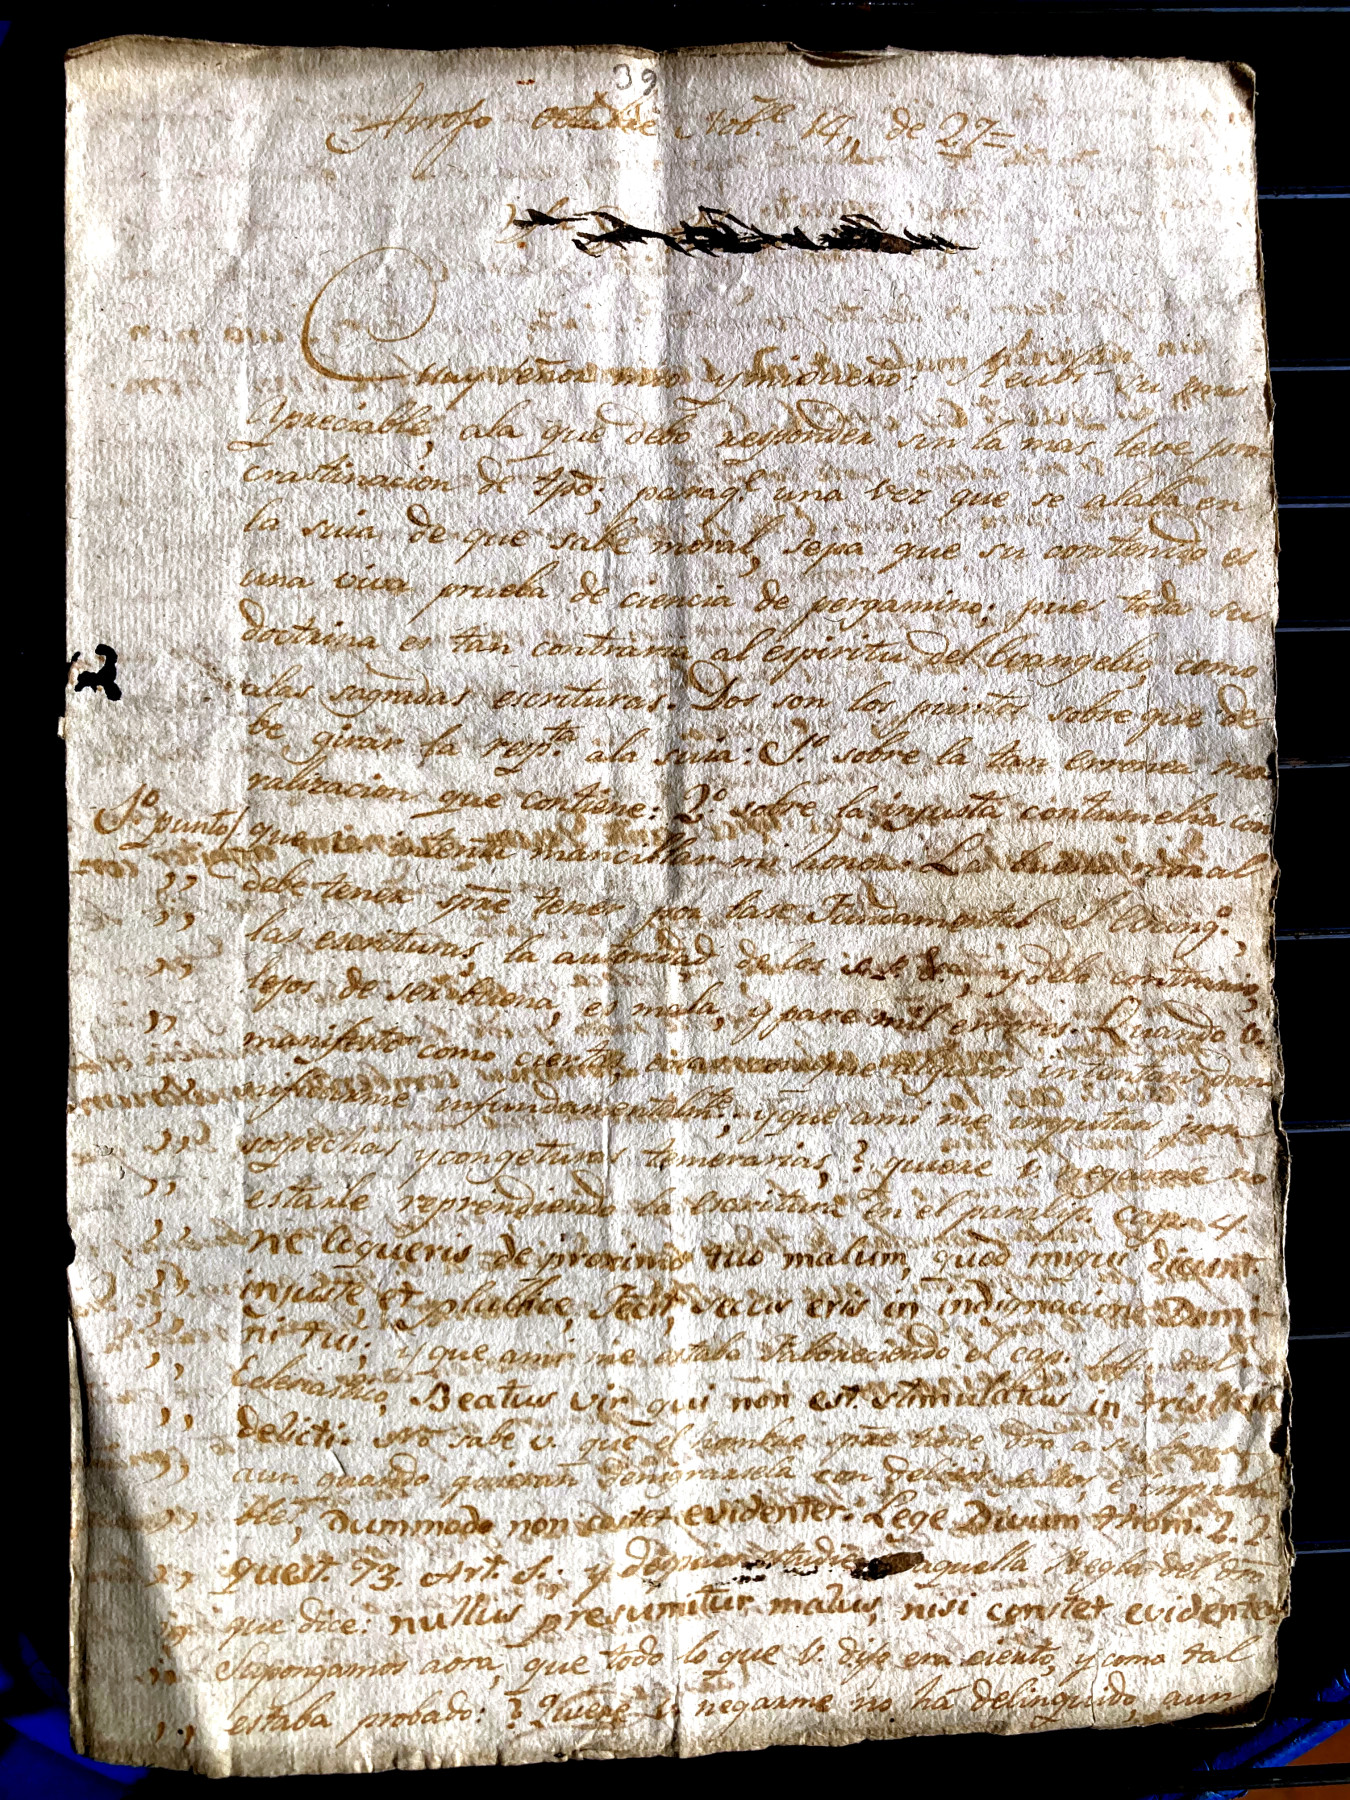 39
Arroyo Nob.e 14,, de 27=
Muy señor mio y mi dueño: Recibi su
apreciable, ala que debo responder sin la mas leve pro
crastinacion de tpō; paraq.e una vez que se alaba en
la suia de que sabe moral, sepa que su contenido es
una viva prueba de ciencia de pergamino; pues toda su
doctrina es tan contraria al espiritu del Evangelio, como
alas sagradas escrituras. Dos son los puntos sobre que de
be girar la resp.ta ala suia: 1.o sobre la tan erronea mo
ralizacion que contiene: 2.o sobre la injusta contumelia con
1.o punto/ que intenta mancillar mi honor. La buena moral
,, debe tener spre tener por base fundamental el Evang.o,
,, las escrituras, la autoridad de los s.s. y dela contrario,
,, lejos de ser buena, es mala, y pare mil errores. Quando v.
,, manifesto como cierta, cosas con que algunos intentan dar
infundamentalm.te; y que ami me imputan por
,, sospechas y congeturas temerarias, ? quiere v. negarme no
,, estarle reprendiendo la escritura en el paralip. cap. 4
,, ne loqueris de proximo tuo malum, quod miqui dicunt
,, injuste, et plublice, fecit, secus eris in indignacione Domi
,, ni tui; y que ami me estaba faboreciendo el cap. del
,, Eclesiastico, Beatus vir qui non est stimulatus in tristitia
,, delicti. No sabe v. que el hombre spre tiene dro a su honor
,, aun quando quieran denigrarsela con delictos falsos, e improba
,, bles, dummodo non costet evidenter. Lege Divum thom. 2. 2
,, quest. 73. Art. 1.; y despues estudie aquella Regla del dro
,, que dice: nullus presumitur malus, nisi constet evidenter
,, Supongamos aora, que todo lo que v. dise era ciento, y como tal
,, estaba probado: ? Quiere v. negarme no há delinquido, aun